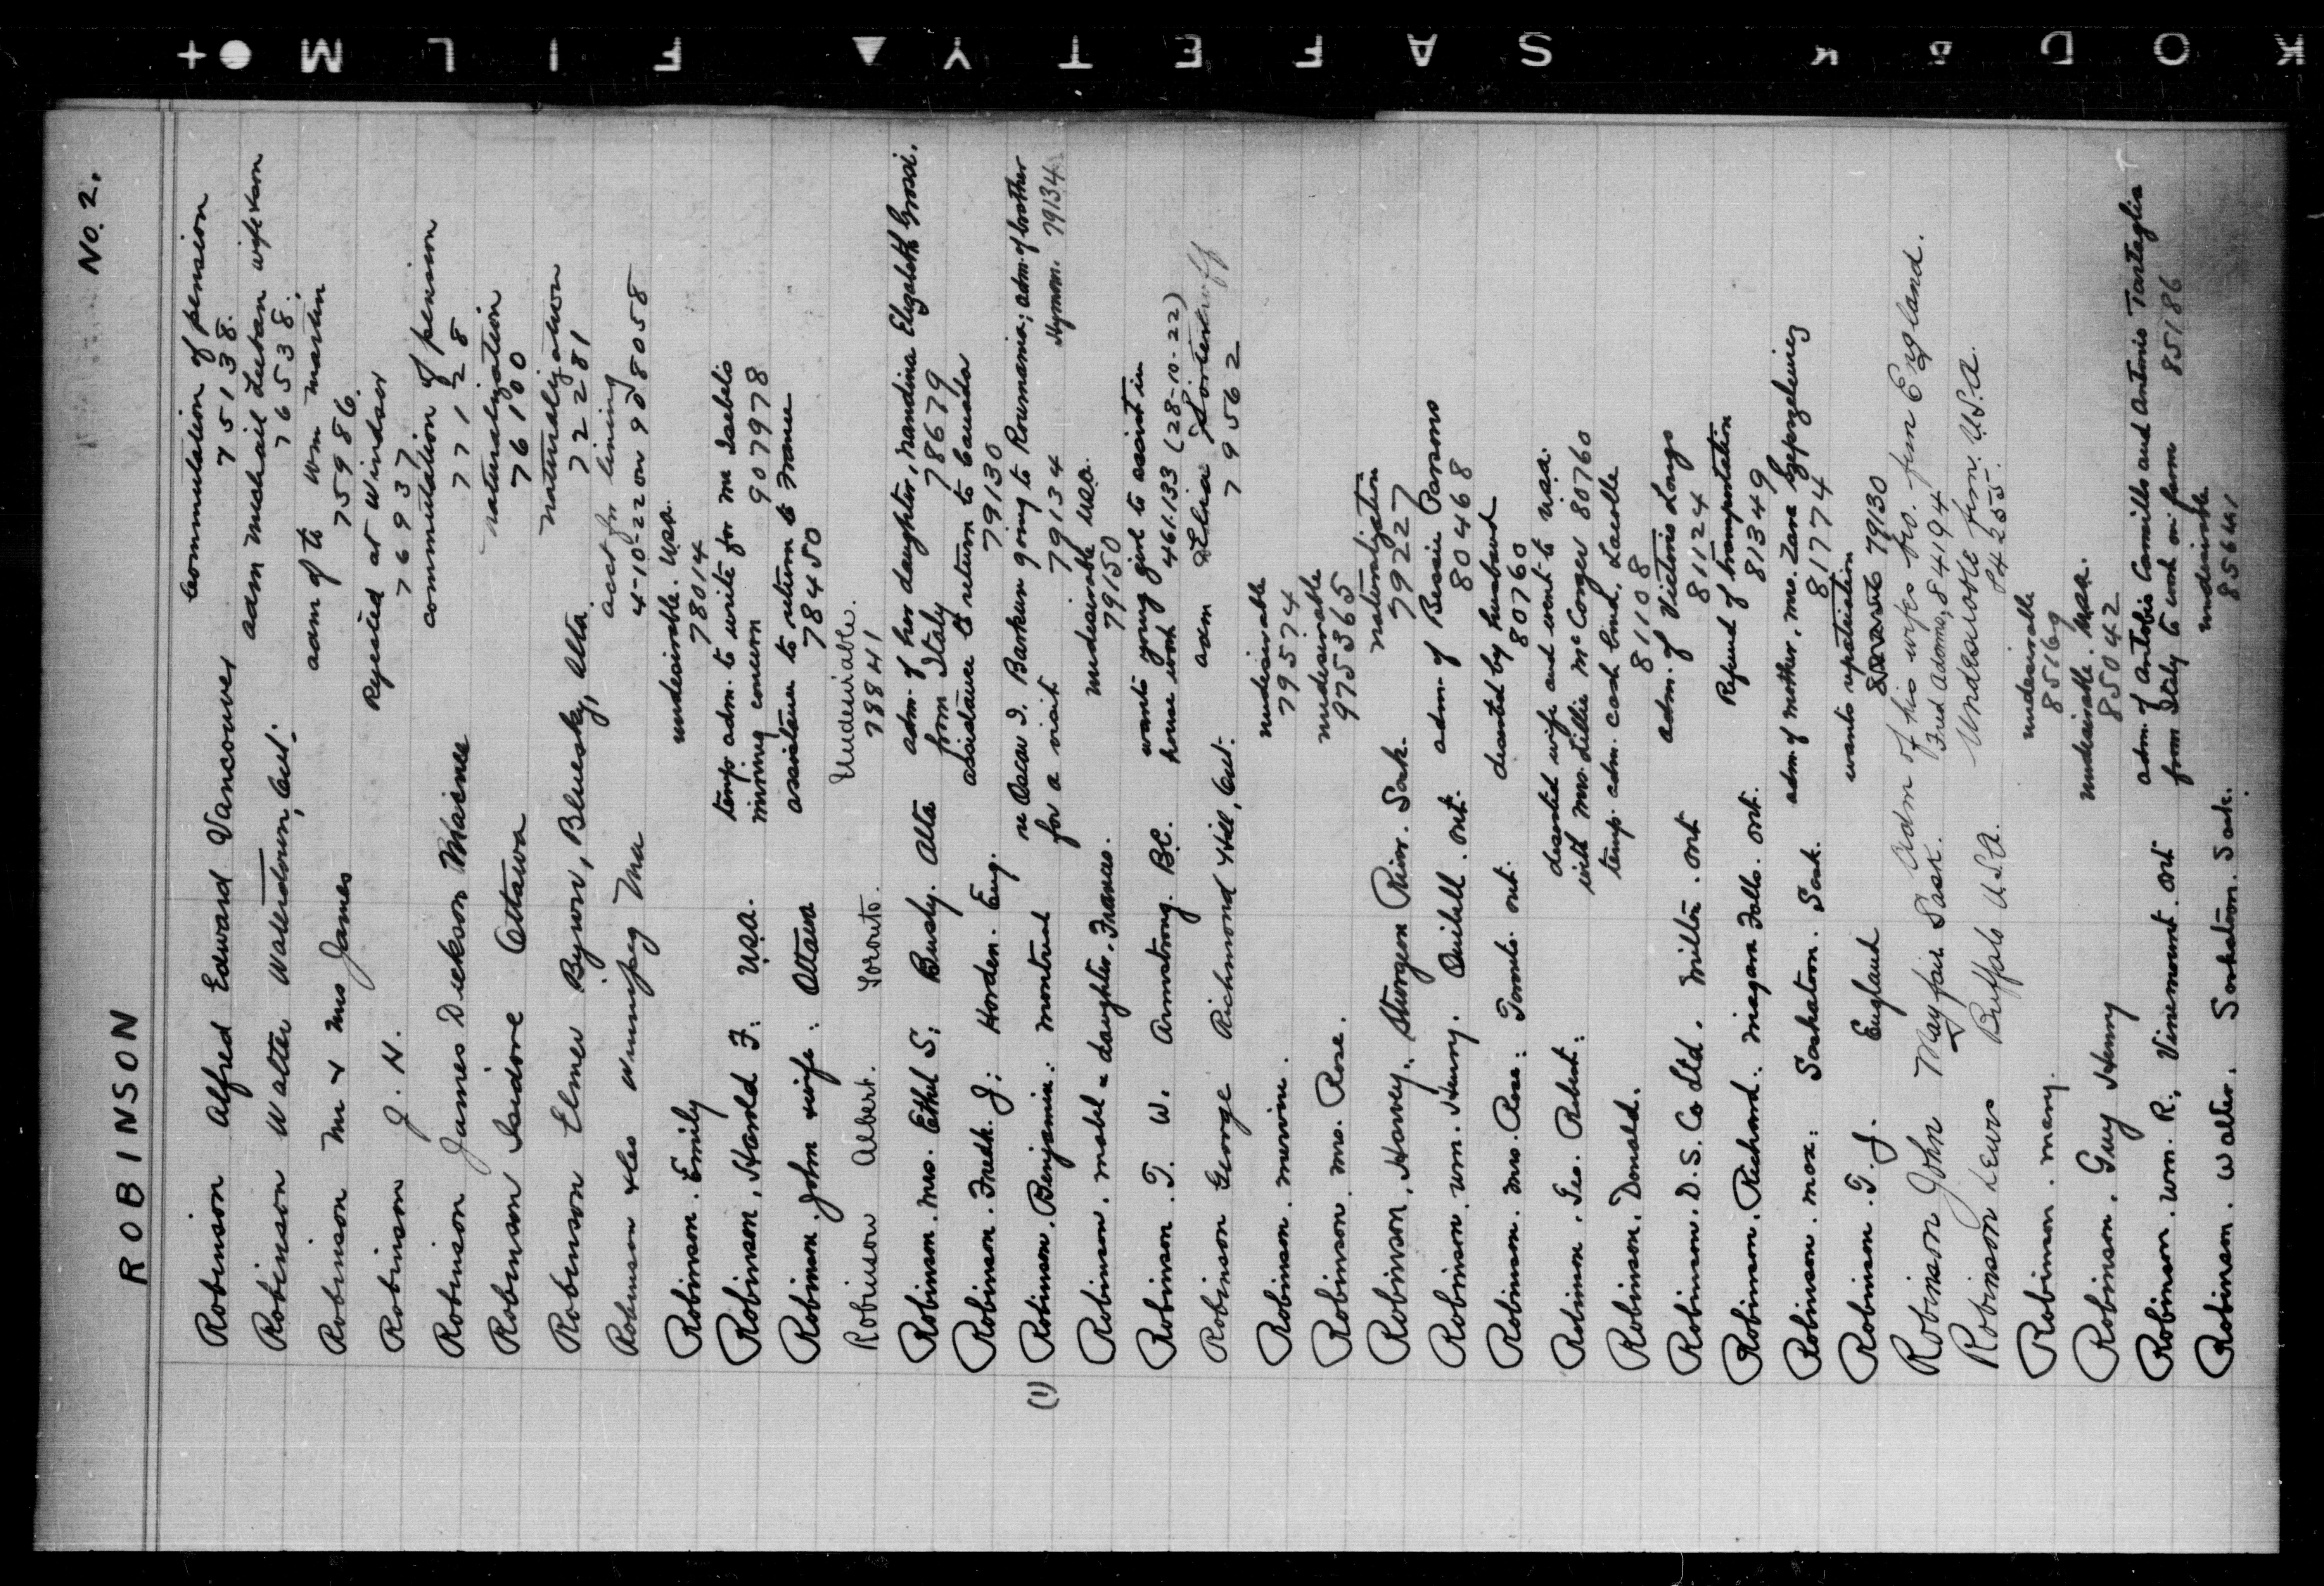 ROBINSON No. 2.
Robinson Alfred Edward Vancouver commutation of pension
75138.
Robinson Walter Waterdown, Ont. adm Michail Luban wife & son
76538.
Robinson Mr & Mrs James adm of to Wm Martin
75986.
Robinson J. H. Rejected at Windsor
76937
Robinson James Dickson Maisne commutation of pension
77128
Robinson Isidore Ottawa naturalization
76100
Robinson Elmer Byron, Bluesky, Alta. naturalization
72281
Robinson & Les Winnipeg Ma acct for lining
4-10-22 on 98058
Robinson. Emily undesirable. U.S.A.
78014
Robinson, Harold F: U.S.A. temp. adm. to write for Mr Isabelis
mining concern 907978
Robinson. John & wife: Ottawa assistance to return to France
78450
Robinson Albert. Toronto. Undesirable.
78841
Robinson. Mrs. Ethel S: Busby. Alta adm. of her daughter, Nandina Elizabeth Grossi.
from Italy 78679
Robinson. Fredk. J: Horden. Eng. assistance to return to Canada
79130
(1) Robinson. Benjamin: Montreal re Oscar I. Barkun going to Roumania; adm. of brother
for a visit 79134 Hyman. 79134
Robinson. Mabel & daughter. Frances. undesirable U.S.A.
79150
Robinson. T. W. Armstrong. B.C. wants young girl to assist in
house work 461.133 (28-10-22)
Robinson George Richmond Hill, Ont. adm
79562
Robinson. Mervine. undesirable
79574
Robinson. Mrs. Rose. undesirable
975365
Robinson, Harvey. Sturgeon River. Sask. naturalization
79227
Robinson. Wm. Henry. Quibell. Ont. adm. of Bessie Parsons
80468
Robinson. Mrs. Rose: Toronto. Ont. deserted by husband
80760
Robinson. Geo. Robert: deserted wife and went to U.S.A.
with Mrs. Lillie McConger 80760
Robinson. Donald. temp. adm. cash bind. Lacolle
81108
Robinson. D. S. Co Ltd. Milton. Ont adm. of Victoris Longo
81124
Robinson. Richard. Niagara Falls. Ont. Refund of transportation
81349
Robinson. Max: Saskatoon. Sask. adm. of mother, Mrs. Zara
81774
Robinson. T. J. England wants repatriation
79130
Robinson John Mayfair Sask. Adm of his wifes bro. from England.
Fred Adams, 84194
Robinson Lewis Buffalo U.S.A. Undesirable from U.S.A.
84255.
Robinson. Mary. undesirable
85169
Robinson. Guy Henry undesirable. U.S.A.
85042
Robinson. Wm. R. Vinemount. Ont adm. of Antobis Camillo and Antonio Tartaglia
from Italy to work on farm 85186
Robinson. Walter. Saskatoon. Sask. undesirable
85641
K O D A K S A F E T Y ▲ F I L M ● +